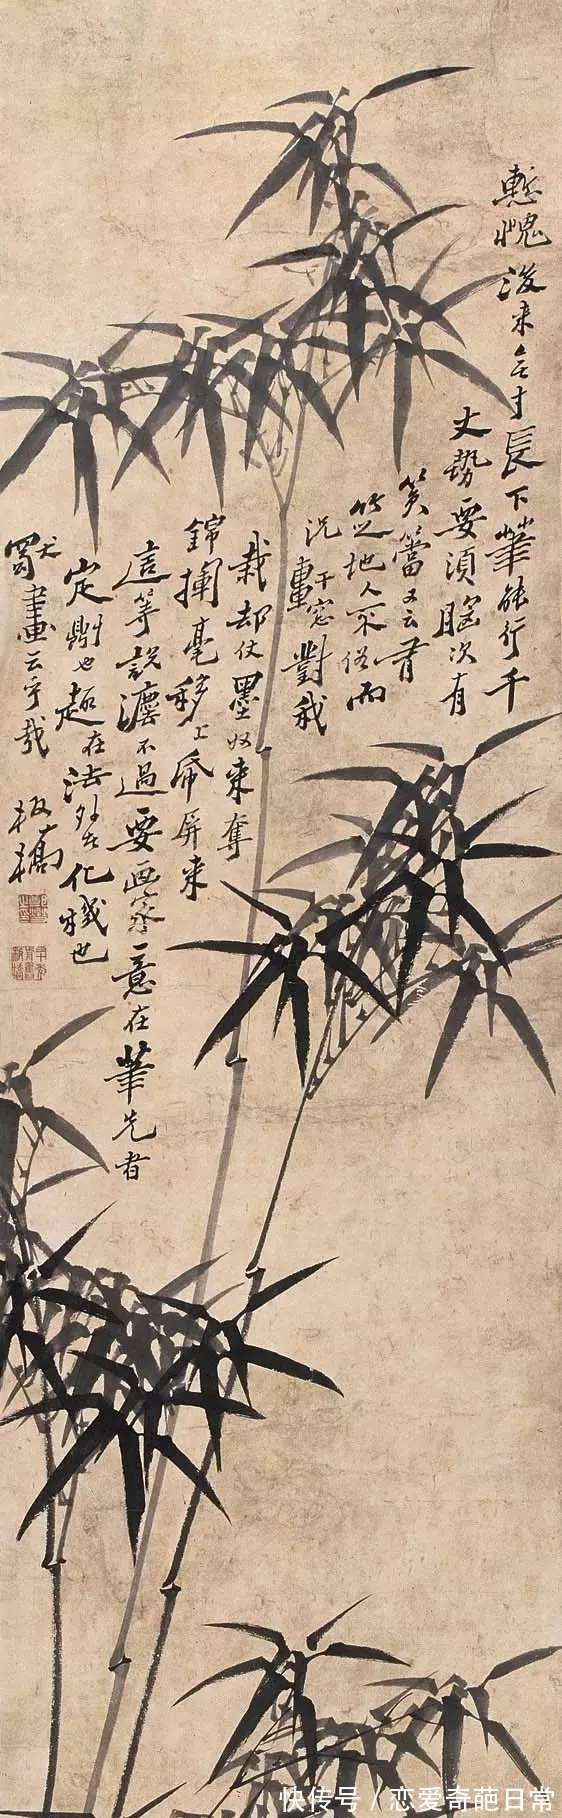 慙愧後來無寸長下筆能行千
丈勢要須胸次有
篔簹又云有
竹之地人不俗而
況軒窓對我
栽却仗墨奴來奪
錦毫移上帋屏來
這等說不過要画家意在筆先者
定則也趣在法外者化機也
獨畫云乎哉
板橋
快传号/恋爱奇葩日常